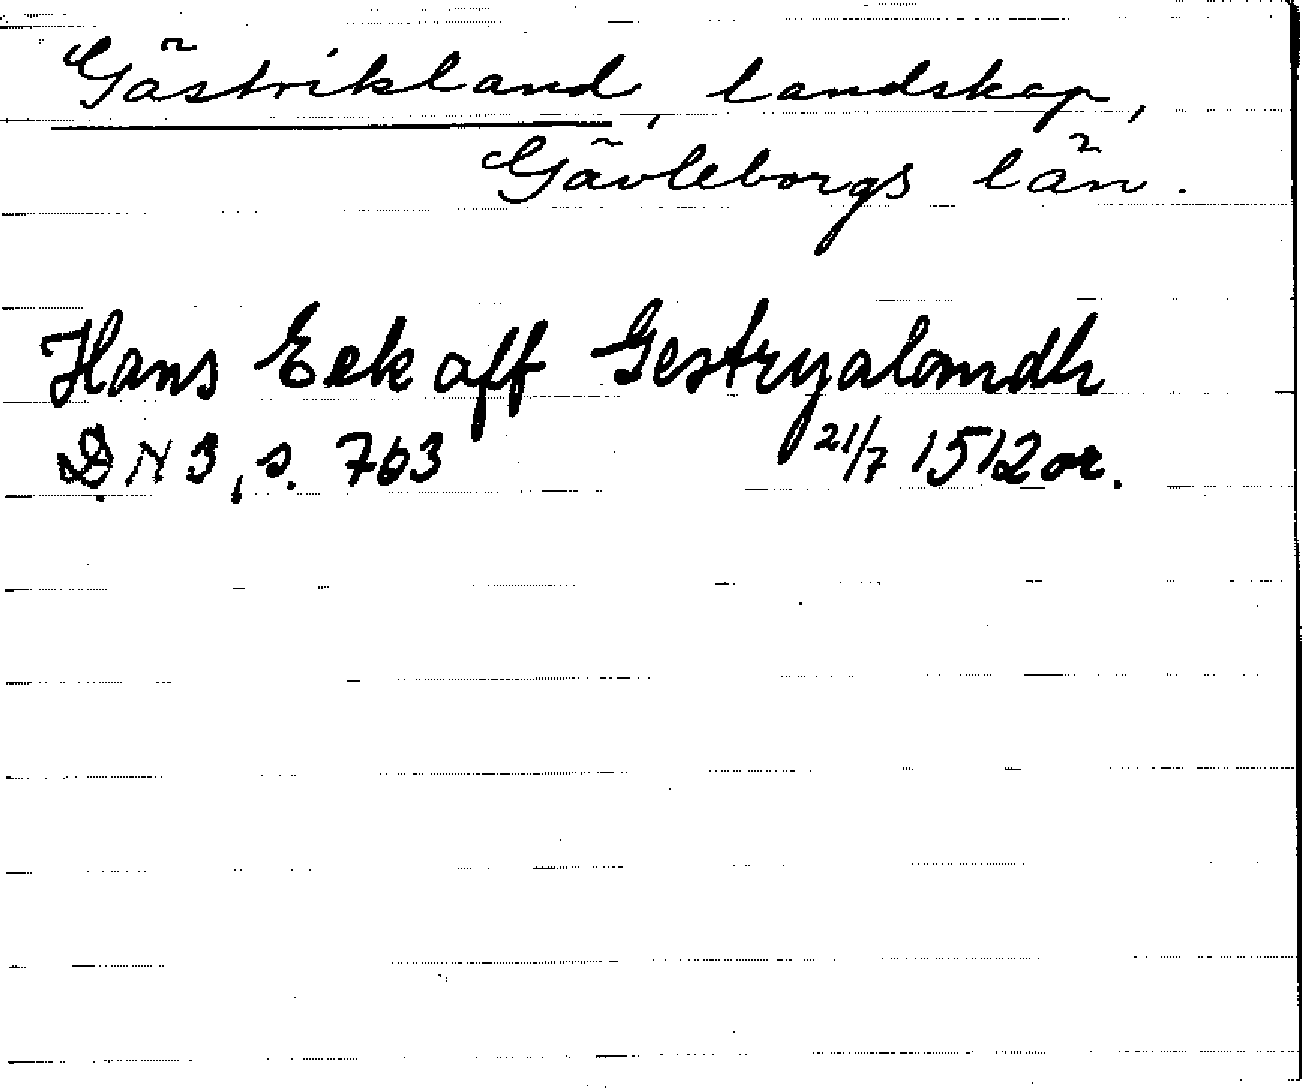 Gästrikland, landskap,
Gävleborgs län.
Hans Eek aff Gestryalamdh
DN 3, s. 763 21/7 1512 or.